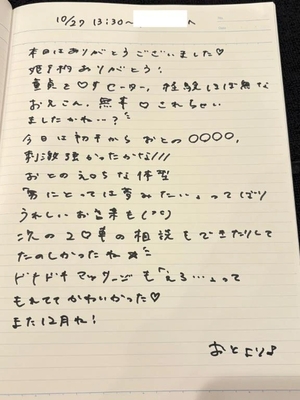 10/27 13:30~ へ
本日はありがとうございました♡
ありがとう!
童貞♡すセーター、経験ほぼ無な
おえさん、無事♡されちゃい
ましたかね…?
今日は初手からおとの○○○○、
刺激強かったかな///
おとのえ○Sな体型
「男にとっては夢みたい」ってばり
うれしいお言葉も(°°)
次の20の相談もできたりして
たのしかったね☆
ドキドキマッサージも「えろ…」って
もれててかわいかった♡
また12月ね!
おとより♪